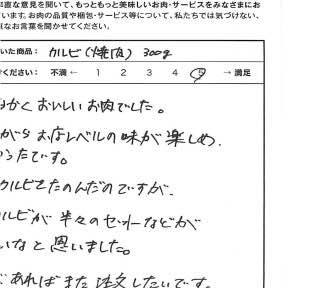 直な意見を聞いて、もっともっと美味しいお肉・サービスをみなさまにお
います。お肉の品質や梱包・サービス等について、私たちでは気づけない、
なお言葉を聞かせてください。
いた商品： カルビ(焼肉) 300g
ください： 不満 ← 1 2 3 4 5 → 満足
らかく おいしいお肉でした。
がら お店レベルの味が楽しめ、
ンたです。
カルビをたのんだのですが、
ルビが 半々のセットなどが
いなと思いました。
あれば また 注文したいです。